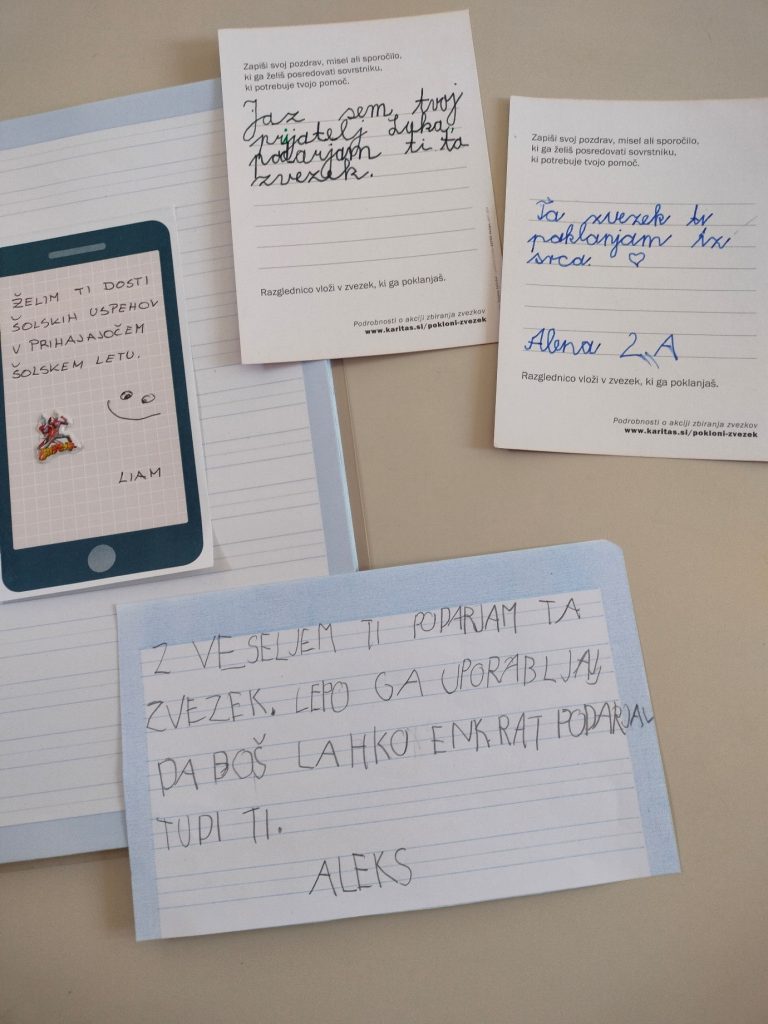 Zapiši svoj pozdrav, misel ali sporočilo,
ki ga želiš posredovati sovrstniku,
ki potrebuje tvojo pomoč.
Jaz sem tvoj
prijatelj Luka,
podarjam ti ta
zvezek.
Razglednico vloži v zvezek, ki ga poklanjaš.
Podrobnosti o akciji zbiranja zvezkov
www.karitas.si/pokloni-zvezek
Zapiši svoj pozdrav, misel ali sporočilo,
ki ga želiš posredovati sovrstniku,
ki potrebuje tvojo pomoč.
Ta zvezek ti
poklanjam iz
srca. ♡
Alena 2.A
Razglednico vloži v zvezek, ki ga poklanjaš.
Podrobnosti o akciji zbiranja zvezkov
www.karitas.si/pokloni-zvezek
ŽELIM TI DOSTI
ŠOLSKIH USPEHOV
V PRIHAJAJOČEM
ŠOLSKEM LETU.
LIAM
Z VESELJEM TI PODARJAM TA
ZVEZEK. LEPO GA UPORABLJAJ,
DA BOŠ LAHKO ENKRAT PODARJAL
TUDI TI.
ALEKS